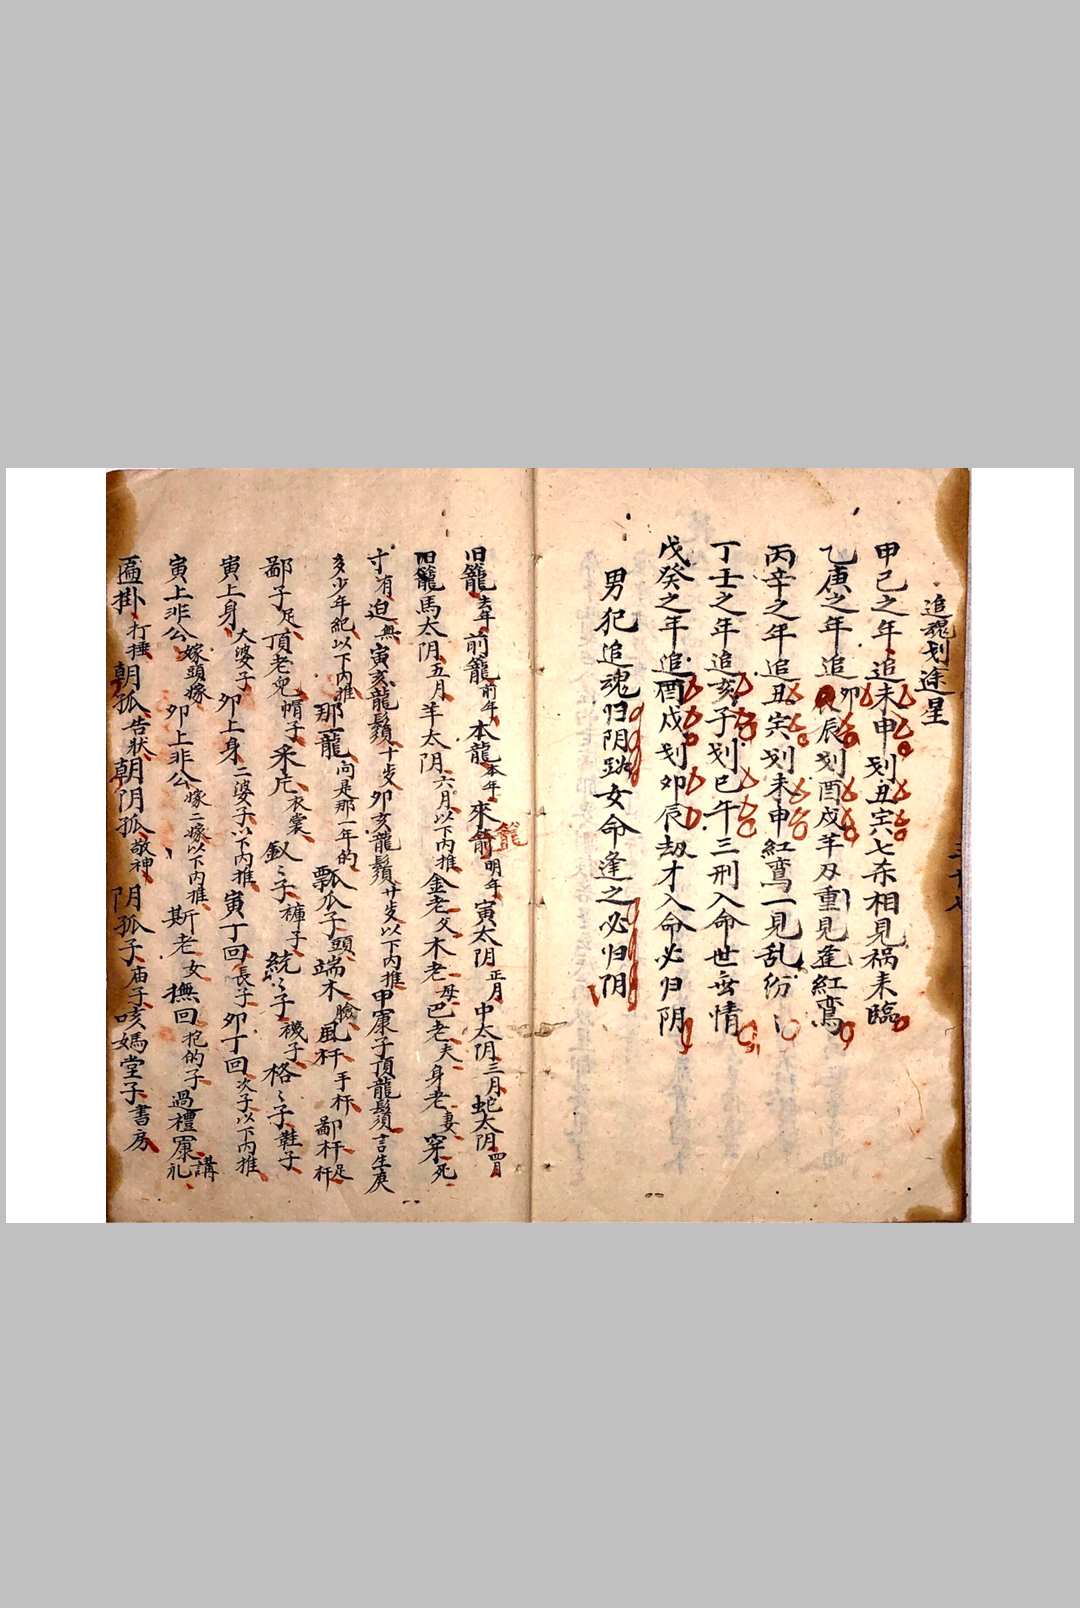 追魂刬途星
甲己之年追未申刬丑寅七杀相見祸来臨
乙庚之年追卯辰刬酉戌羊刃重見逢紅鸾
丙辛之年追丑寅刬未申紅鸾一見乱纷纷
丁壬之年追亥子刬巳午三刑入命世無情
戊癸之年追酉戌刬卯辰劫才入命必归阴
男犯追魂归阴 女命逢之必归阴
旧龍去年前龍前年本龍本年來龍明年寅太阴正月中太阴三月蛇太阴四月
旧龍馬太阴五月羊太阴六月以下内推金老父木老母巴老夫身老妻穿死
寸有迫無寅亥龍鬚十岁卯亥龍鬚廿岁以下内推甲寅子頂龍鬚言生庚
多少年紀以下内推那龍问是那一年的瓢瓜子頭端木臉風杆手杆鄙杆足杆
鄙子足頂老兒帽子采片衣裳釵〻子褲子統〻子襪子格〻子鞋子
寅上身大婆子卯上身二婆子以下内推寅丁回長子卯丁回次子以下内推
寅上非公嫁頭嫁卯上非公嫁二嫁以下内推斯老女撫回抱的子過禮寅講礼
匾掛打捶朝孤告狀朝阴孤敬神阴孤子庙子咳媽堂子書房